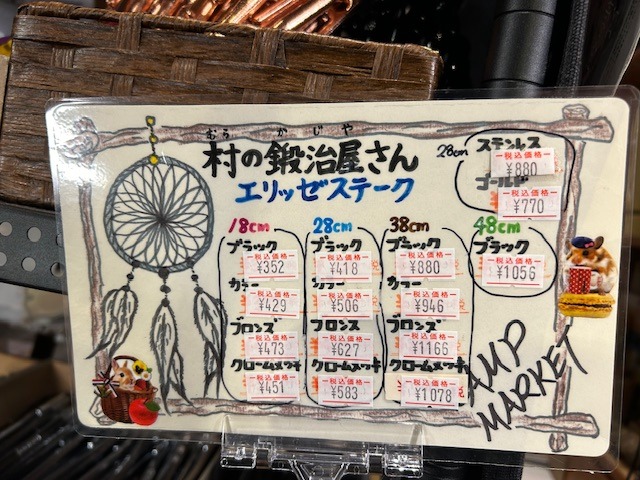 むら かじや
村の鍛冶屋さん
エリッゼステーク
28cm
ステンレス
税込価格
¥880
ゴールド
税込価格
¥770
18cm
ブラック
税込価格
¥352
カラー
税込価格
¥429
ブロンズ
税込価格
¥473
クロームメッキ
税込価格
¥451
28cm
ブラック
税込価格
¥418
カラー
税込価格
¥506
ブロンズ
税込価格
¥627
クロームメッキ
税込価格
¥583
38cm
ブラック
税込価格
¥880
カラー
税込価格
¥946
ブロンズ
税込価格
¥1166
クロームメッキ
税込価格
¥1078
48cm
ブラック
税込価格
¥1056
MARKET